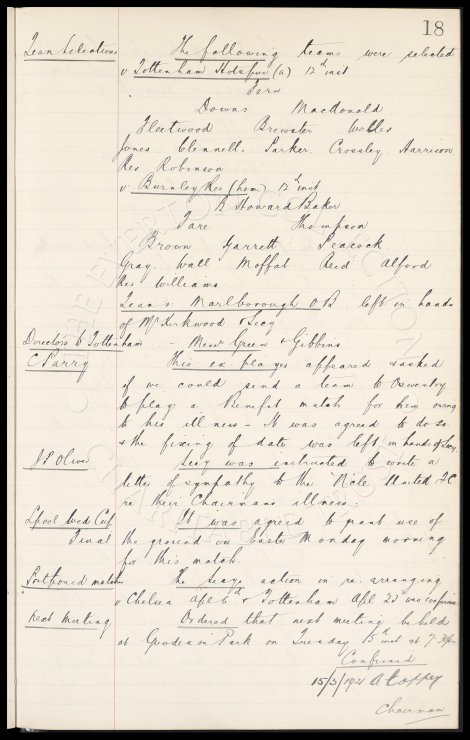 18
Team Selections The following teams were selected
v Tottenham Hotspur (a) 12th inst
Fern
Downs MacDonald
Fleetwood Brewster Weller
Jones Clennell Parker Crossley Harrison
Res Robinson
v Burnley Res (home) 12th inst
B Howard Baker
Fare Thompson
Brown Garrett Peacock
Gray Wall Moffat Reid Alford
Res Williams
Team v Marlborough O B. left in hands
of Mr Kirkwood & Secy
Directors to Tottenham – Messrs Green & Gibbins
C Parry This ex player appeared & asked
if we could send a team to Oswestry
to play a Benefit match for him owing
to his illness – It was agreed to do so
& the fixing of date was left in hands of Secy.
J P Oliver Secy was instructed to write a
letter of sympathy to the N'cle United FC
re their Chairmans illness.
Lpool Wed Cup It was agreed to grant use of
Final the ground on Easter Monday morning
for this match.
Postponed matches The Secys action in re arranging
v Chelsea Apl 6th & Tottenham Apl 23rd was confirmed
Next meeting Ordered that next meeting be held
at Goodison Park on Tuesday 15th inst at 7.30pm
Confirmed
15/3/1921 A Coffey
Chairman